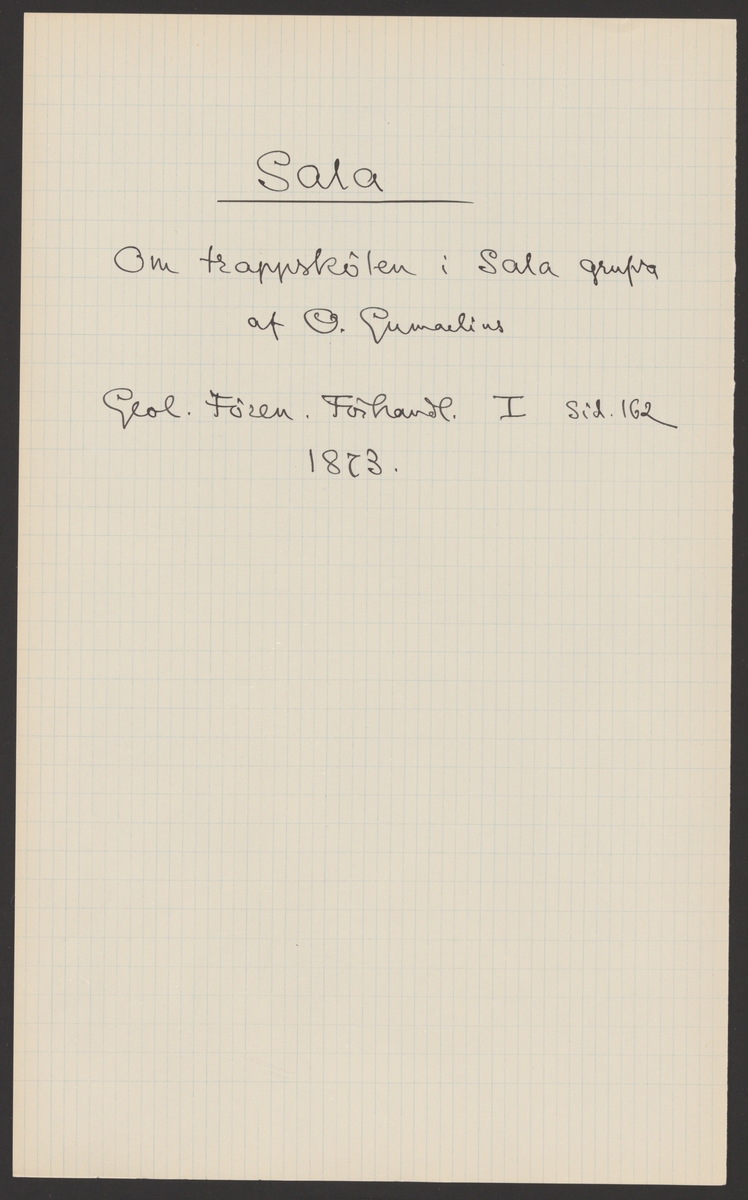 Sala
Om trappskölen i Sala grufva
af O. Gumaelius
Geol. Fören. Förhandl. I Sid. 162
1873.